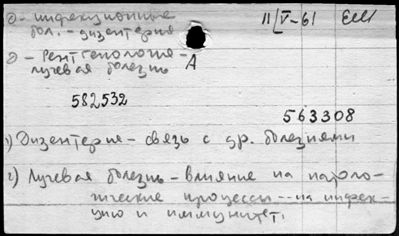 0 - инфекционные 11/V-61
бол. - дизентерия
0 - Рентгенология -
лучевая болезнь A
582532
563308
1) Дизентерия - связь с др. болезнями
2) Лучевая болезнь - влияние на патоло-
гические процессы - на инфек-
цию и иммунитет.